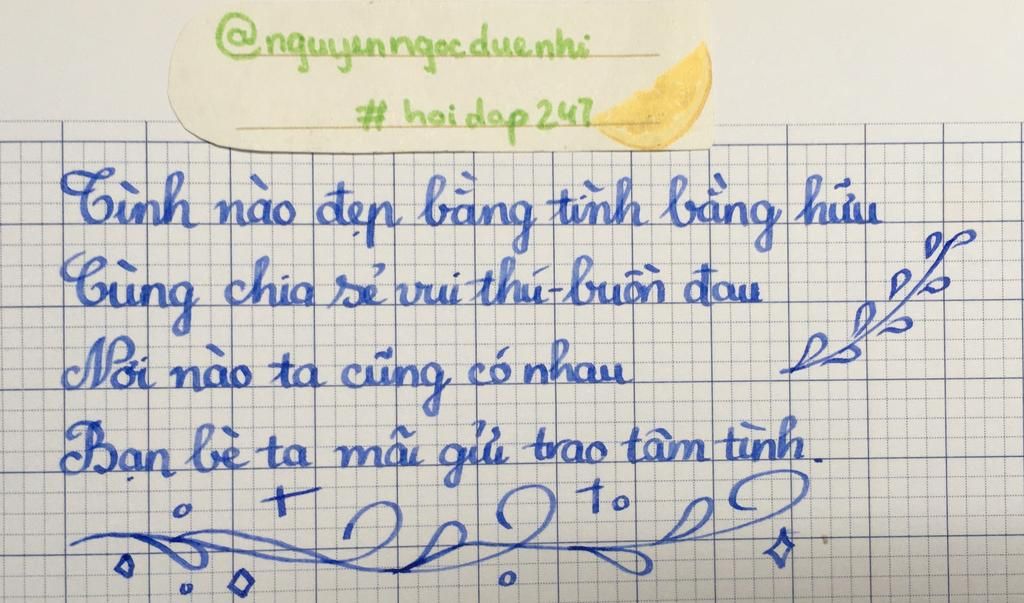 @nguyenngocduenhi
# hoidap247
Tình nào đẹp bằng tình bằng hữu
Cùng chia sẻ vui thú - buồn đau
Nơi nào ta cũng có nhau
Bạn bè ta mãi gửi trao tâm tình.